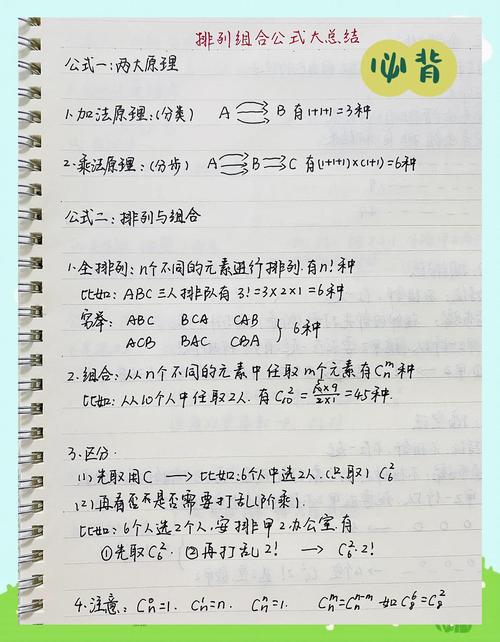 排列组合公式大总结
必背
公式一:两大原理
1.加法原理:(分类) A B 有1+1+1=3种
2.乘法原理:(分步) A B C 有(1+1+1)×(1+1)=6种
公式二:排列与组合
1.全排列:n个不同的元素进行排列.有n!种
比如:ABC三人排队有3!=3×2×1=6种
穷举: ABC BCA CAB
ACB BAC CBA } 6种
2.组合:从n个不同的元素中任取m个元素有Cₙᵐ种
比如:从10个人中任取2人.有C₁₀²=10×9/2×1=45种.
3.区分.
(1)先取用C → 比如:6个人中选2人.(只取) C₆²
(2)再看否不是否需要打乱(阶乘).
比如:6个人选2个人,安排甲乙办公室有
①先取C₆². ②再打乱2! → C₆²·2!
4.注意: Cₙ⁰=1. Cₙ¹=n. Cₙⁿ=1. Cₙᵐ=Cₙⁿ⁻ᵐ 如C₈⁶=C₈²